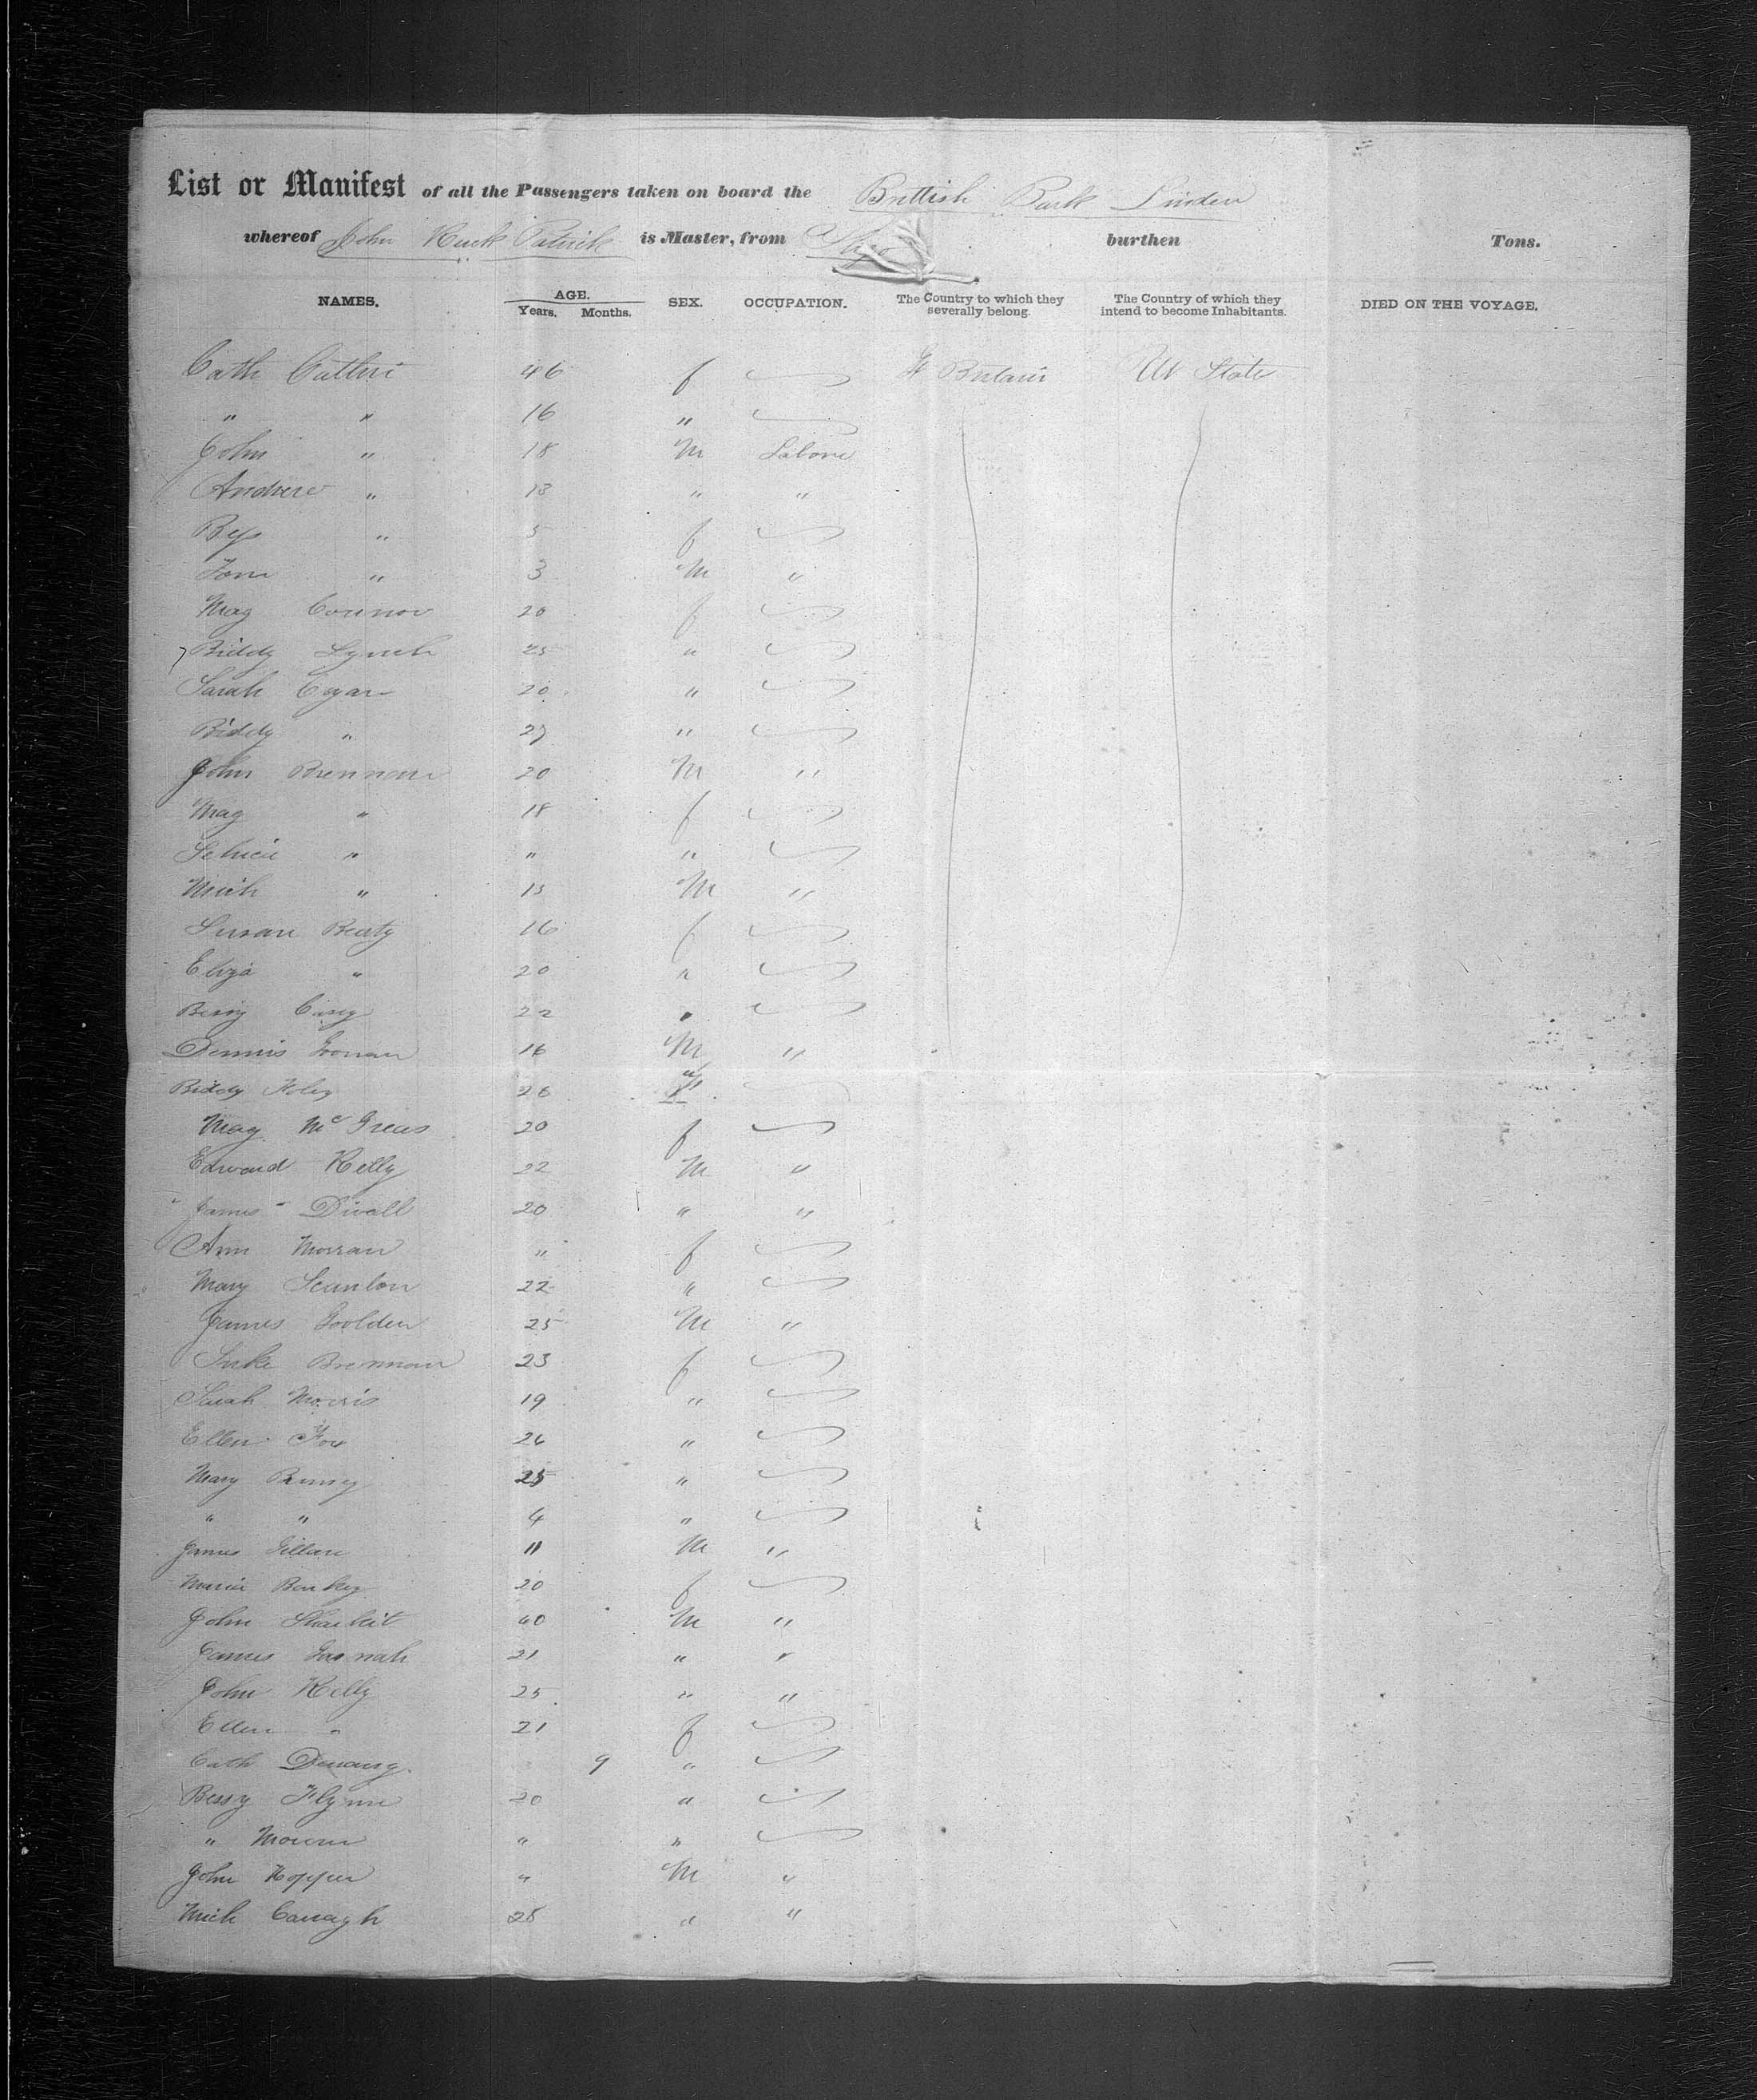 List or Manifest of all the Passengers taken on board the Brittish Bark Linden
whereof John Kirk Patrick is Master, from Sligo burthen Tons.
NAMES. AGE. Years. Months. SEX. OCCUPATION. The Country to which they severally belong. The Country of which they intend to become Inhabitants. DIED ON THE VOYAGE.
Cath 46 f Gt Britain Ud State
" " 16 "
John " 18 M Labore
Andrew " 13 " "
Bess " 5 f
Tom " 3 M "
Mag Connor 20 f
Biddy Lynch 25 "
Sarah Egan 20 "
Biddy " 27 "
John Brennan 20 M "
Mag " 18 f
" " "
Mich " 15 M "
Susan Beaty 16 f
Eliza " 20 "
Bessy Casey 22 "
Dennis Noonan 16 M "
Biddy Foley 26
Mag Mc 20 f
Edward Kelly 22 M "
" James " Divall 20 " "
Ann Morran " f
Mary Scanlon 22 "
James Goolden 25 M "
Luke Brennan 23 f
Sarah Morris 19 "
Ellen Fox 26 "
Mary 25 "
" " 4 "
James Gillan 11 M "
Maria 20 f
John 40 M "
James 21 " "
John Kelly 25 " "
Ellen " 21 f
Cath 9 "
Bessy Flynn 20 "
" " "
John Hopper " M "
Mich Cavagh 25 " "